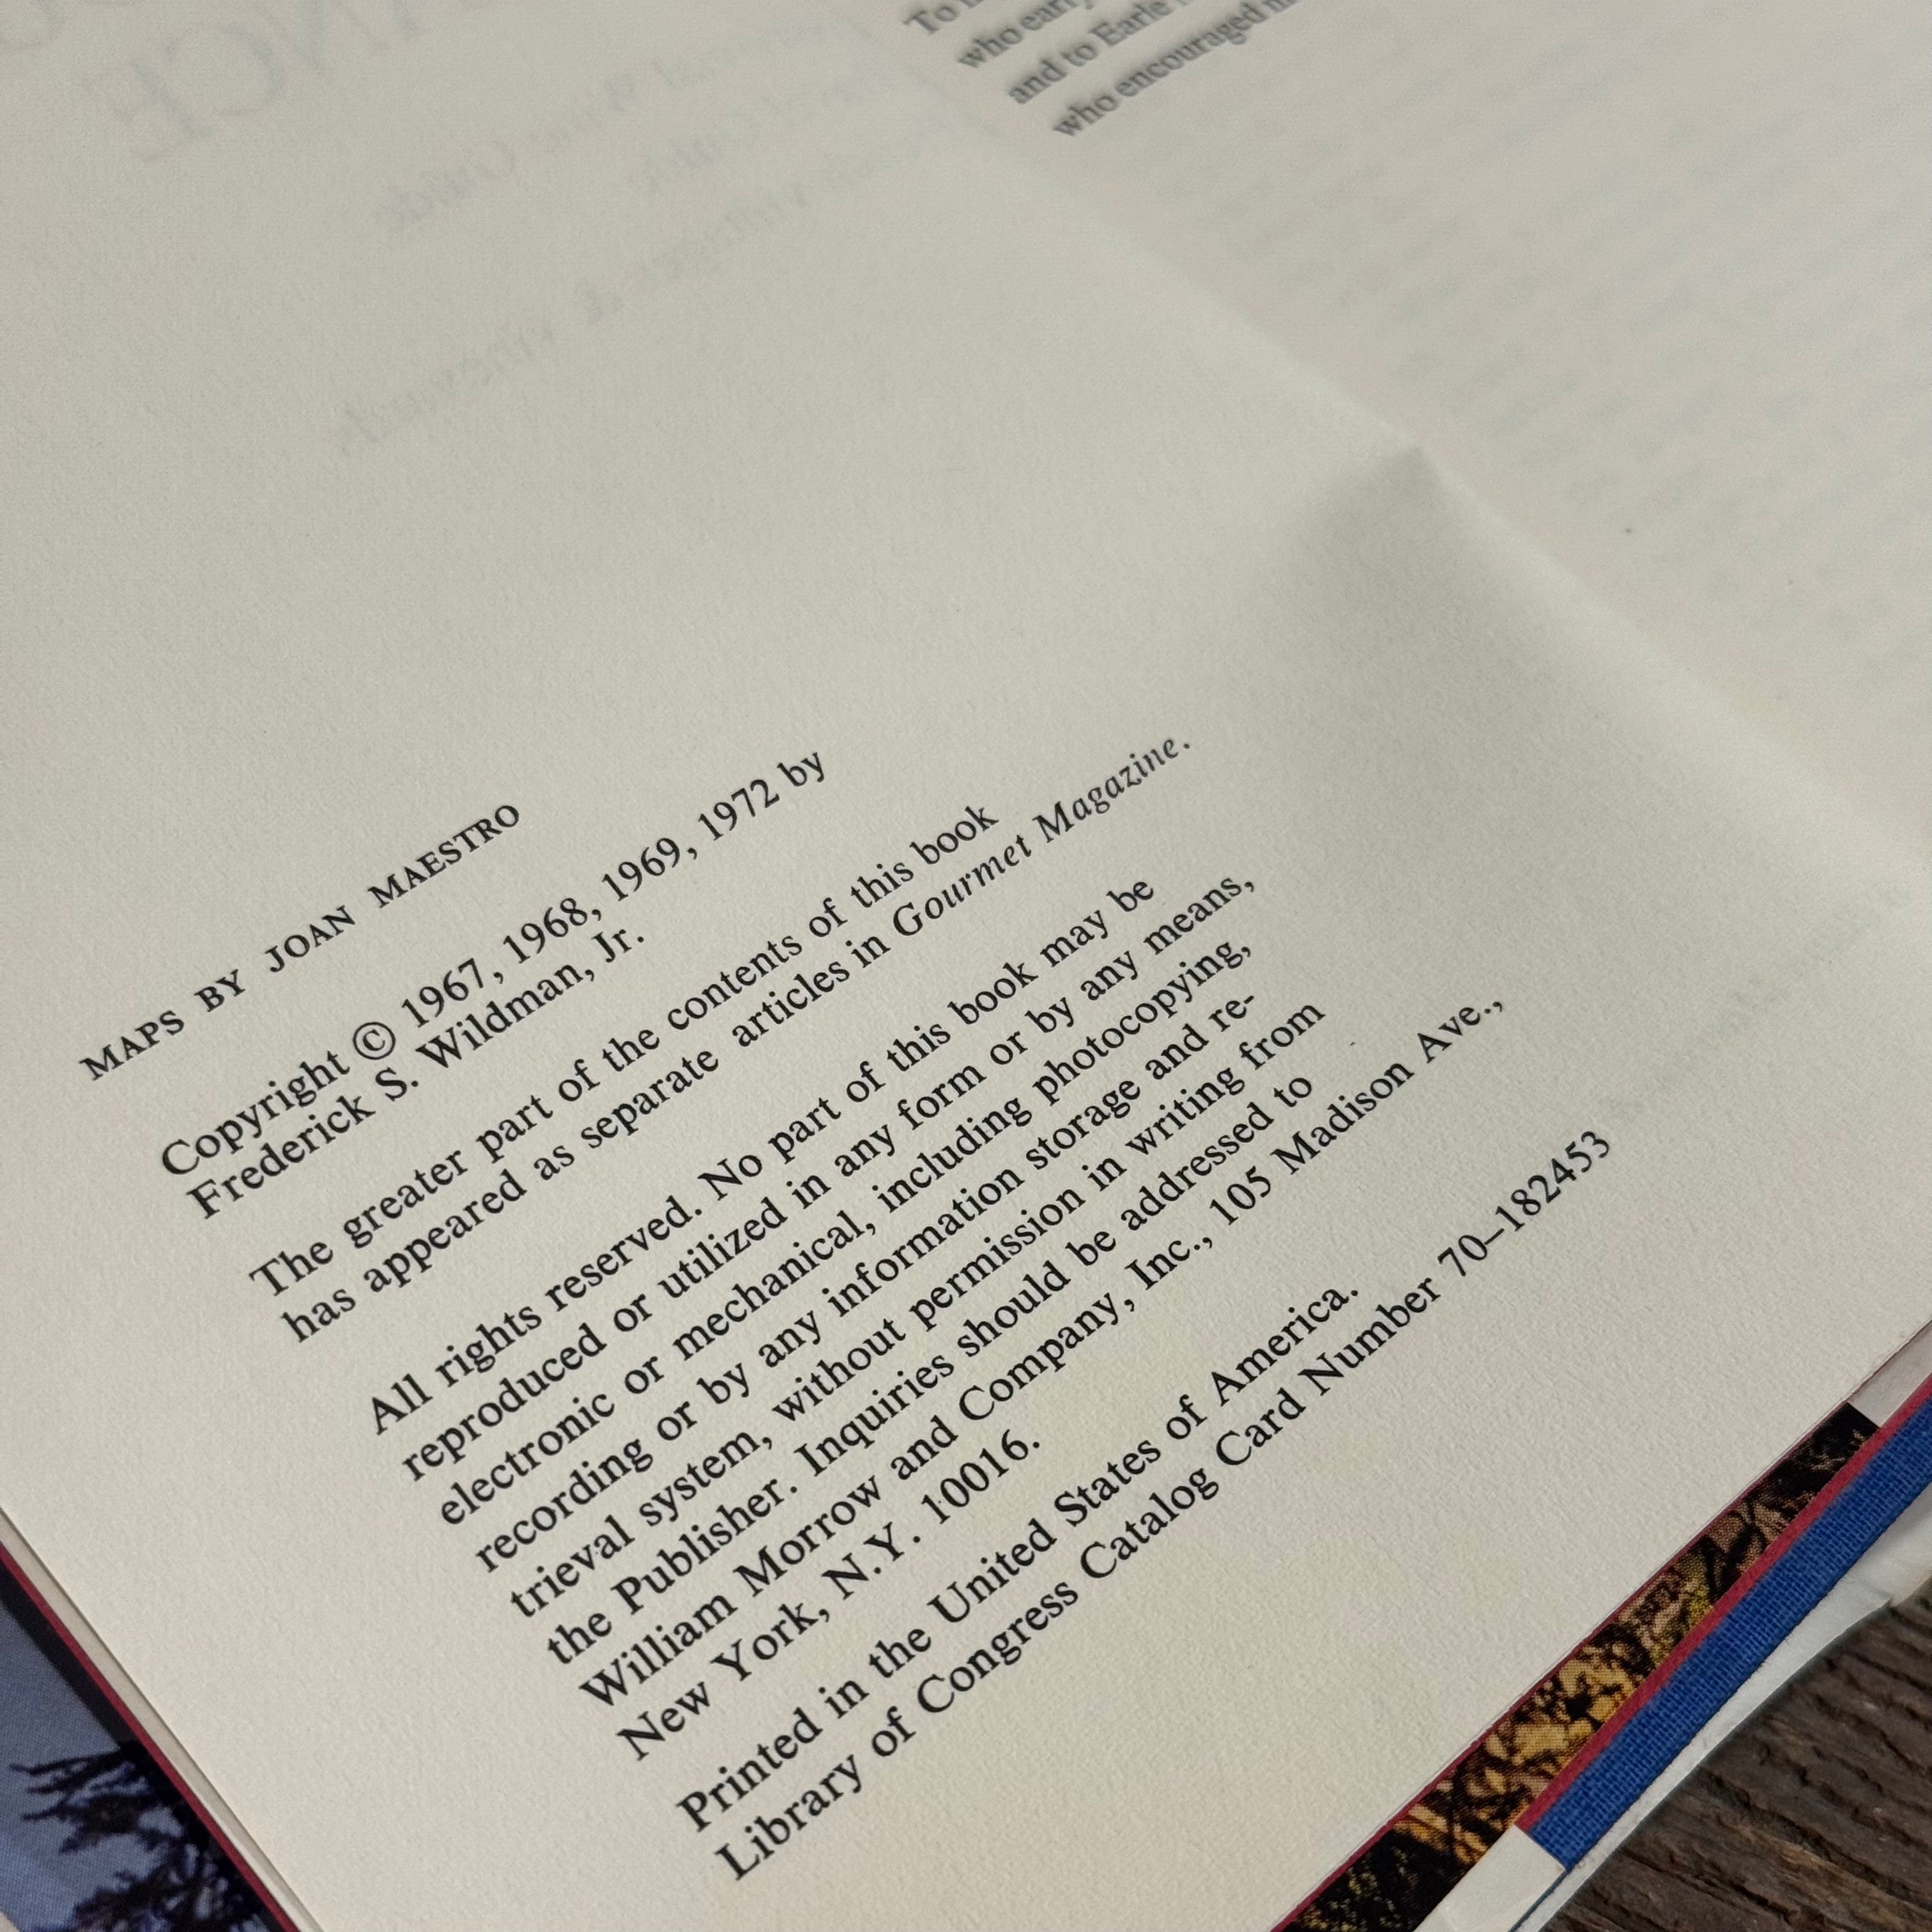 MAPS BY JOAN MAESTRO
Copyright © 1967, 1968, 1969, 1972 by
Frederick S. Wildman, Jr.
The greater part of the contents of this book
has appeared as separate articles in Gourmet Magazine.
All rights reserved. No part of this book may be
reproduced or utilized in any form or by any means,
electronic or mechanical, including photocopying,
recording or by any information storage and re-
trieval system, without permission in writing from
the Publisher. Inquiries should be addressed to
William Morrow and Company, Inc., 105 Madison Ave.,
New York, N.Y. 10016.
Printed in the United States of America.
Library of Congress Catalog Card Number 70–182453
To
who early
and to Earle
who encouraged